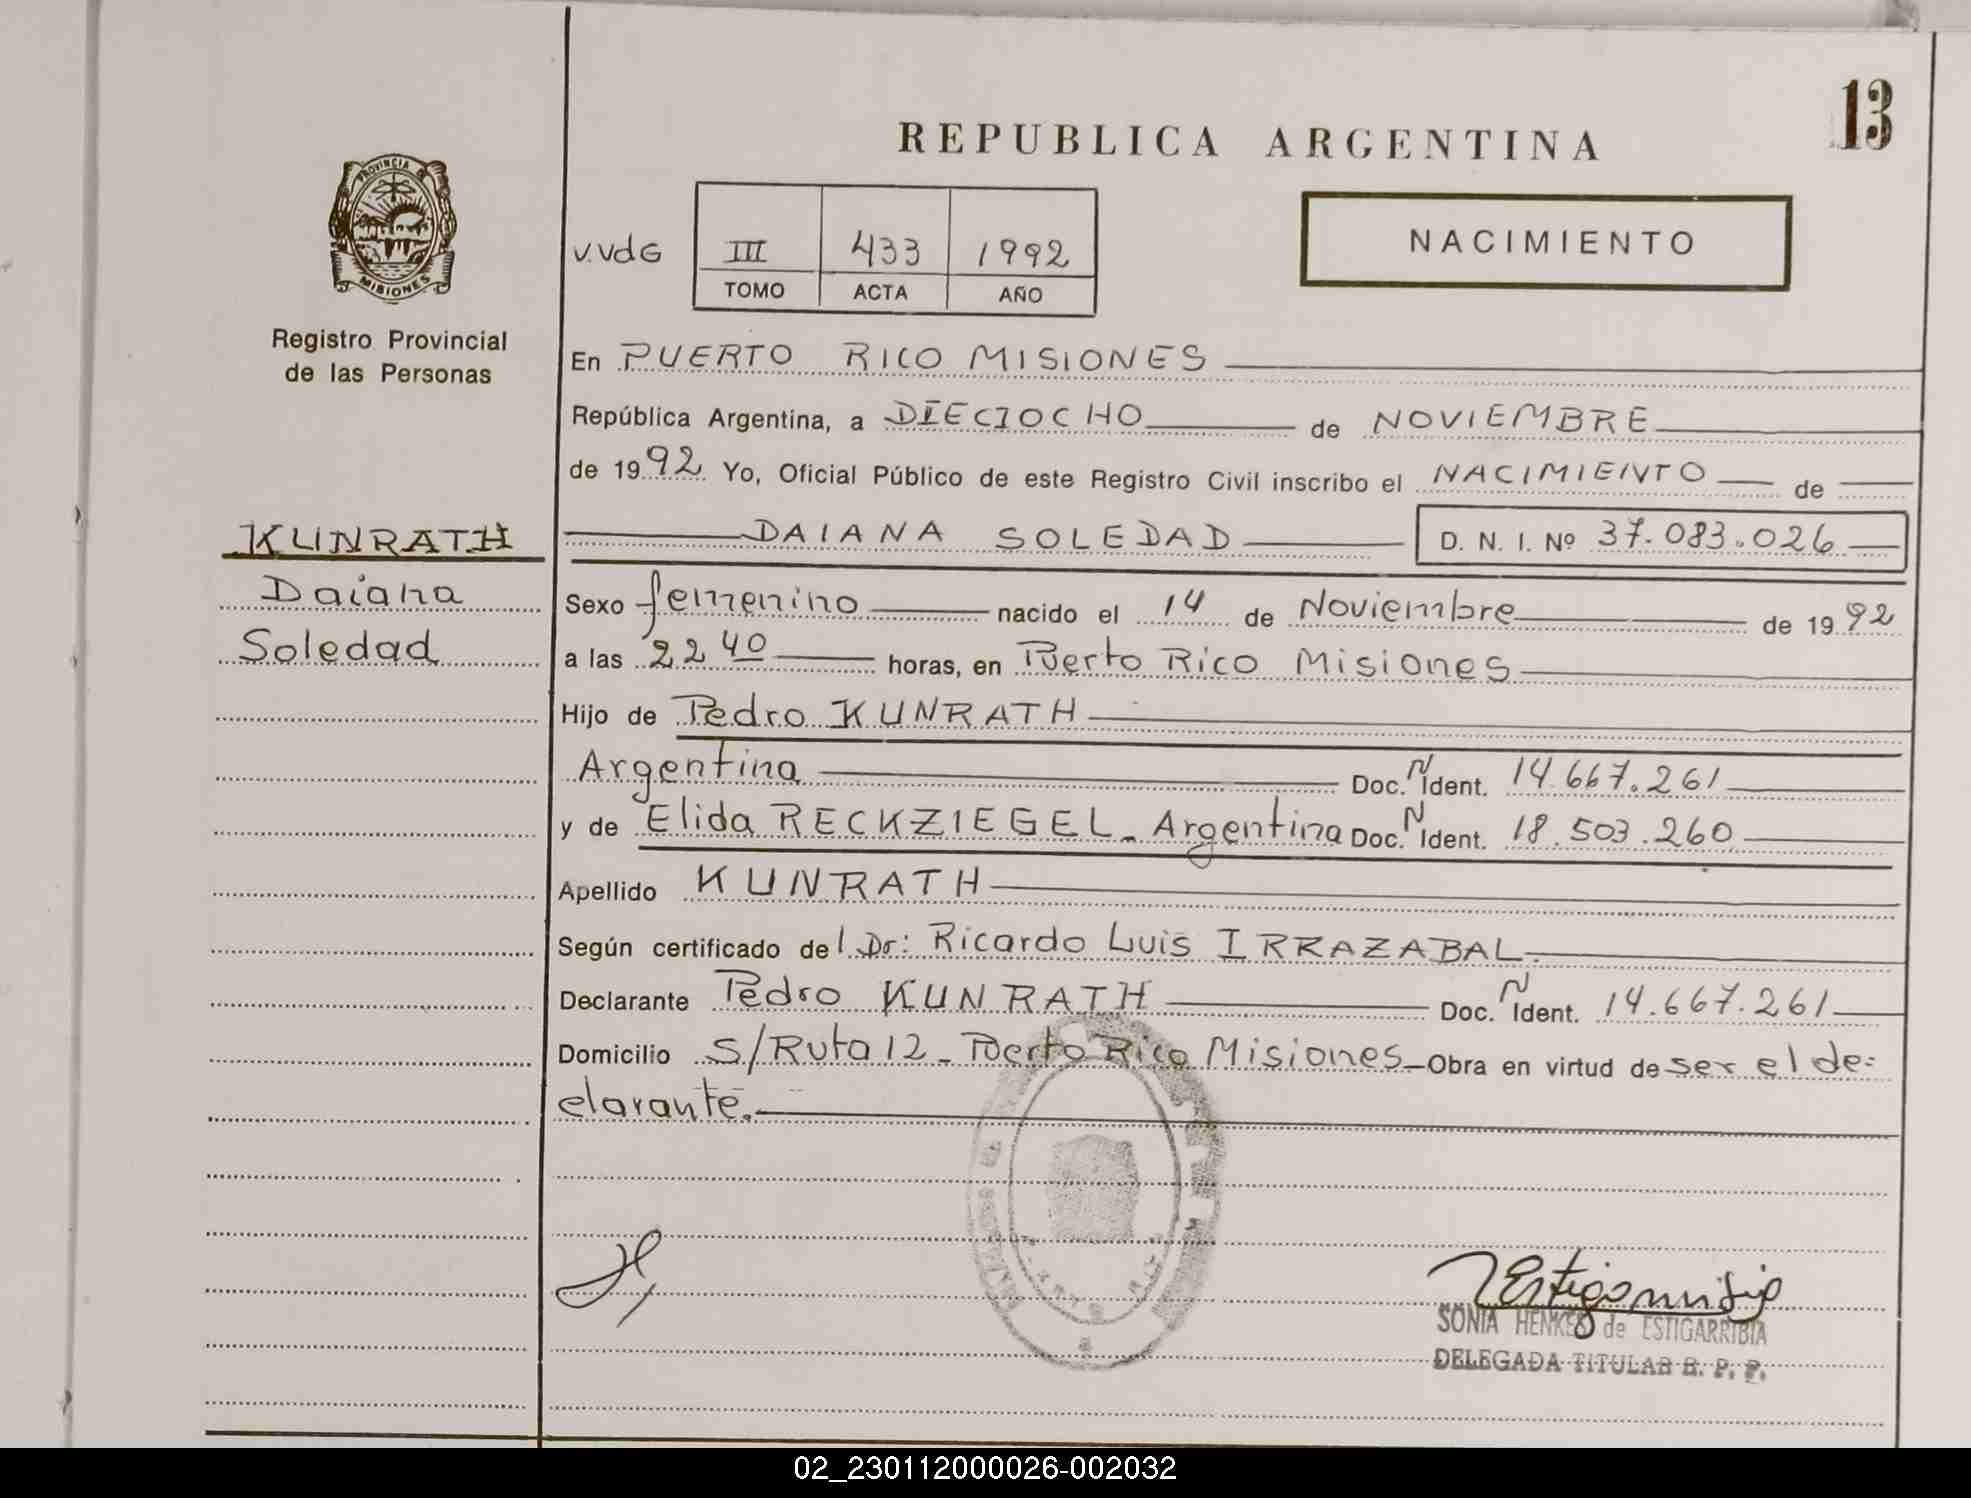 13
REPUBLICA ARGENTINA
PROVINCIA DE
MISIONES
Registro Provincial
de las Personas
V.VdG
III 433 1992
TOMO ACTA AÑO
NACIMIENTO
En PUERTO RICO MISIONES
República Argentina, a DIECIOCHO de NOVIEMBRE
de 1992 Yo, Oficial Público de este Registro Civil inscribo el NACIMIENTO de
DAIANA SOLEDAD D. N. I. Nº 37.083.026
KUNRATH
Daiana
Soledad
Sexo femenino nacido el 14 de Noviembre de 1992
a las 22 40 horas, en Puerto Rico Misiones
Hijo de Pedro KUNRATH
Argentina Doc. N Ident. 14.667.261
y de Elida RECKZIEGEL - Argentina Doc. N Ident. 18.503.260
Apellido KUNRATH
Según certificado del Dr: Ricardo Luis IRRAZABAL.
Declarante Pedro KUNRATH Doc. N Ident. 14.667.261
Domicilio S/Ruta 12 - Puerto Rico Misiones - Obra en virtud de ser el de=
clarante.
SONIA HENKES de ESTIGARRIBIA
DELEGADA TITULAR R. P. P.
02_230112000026-002032